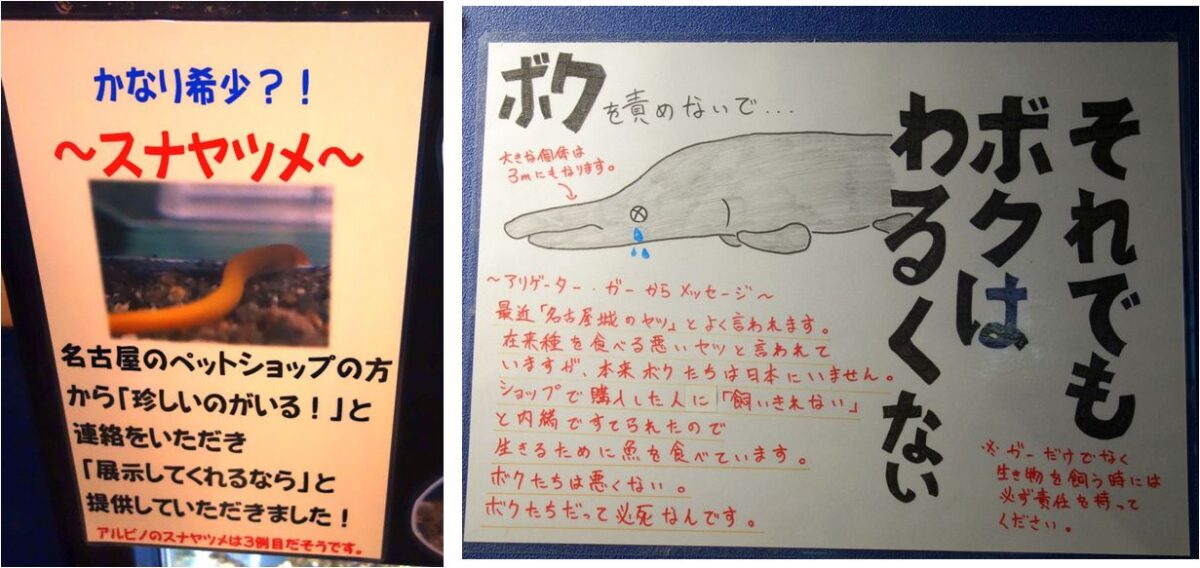 かなり希少？！
～スナヤツメ～
名古屋のペットショップの方
から「珍しいのがいる！」と
連絡をいただき
「展示してくれるなら」と
提供していただきました！
アルビノのスナヤツメは3例目だそうです。
ボクを責めないで...
大きな個体は
3mにもなります。
それでも
ボクは
わるくない
～アリゲーター・ガーからメッセージ～
最近「名古屋城のヤツ」とよく言われます。
在来種を食べる悪いヤツと言われて
いますが、本来ボクたちは日本にいません。
ショップで購入した人に「飼いきれない」
と内緒ですてられたので
生きるために魚を食べています。
ボクたちは悪くない。
ボクたちだって必死なんです。
※ガーだけでなく
生き物を飼う時には
必ず責任を持って
ください。